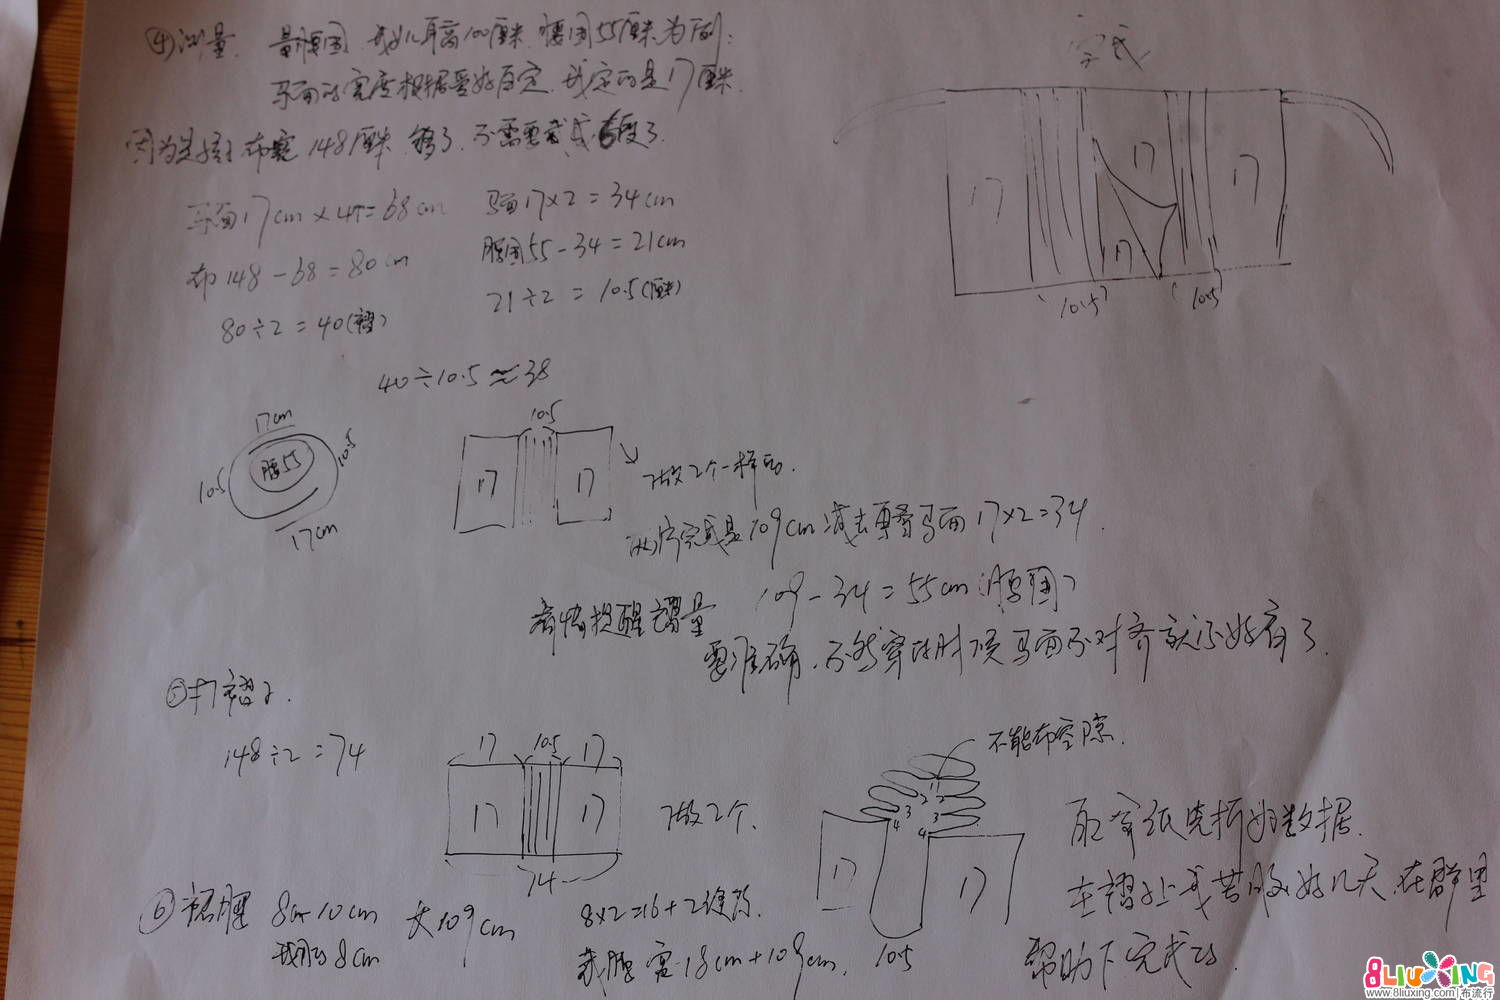 ④测量 量腰围 我女儿身高100厘米 腰围55厘米为例:
马面的宽度根据爱好自定,我定的是17厘米.
因为是 布宽148厘米 够了,不需要
完成
马面17cm×4=68cm 马面17×2=34cm
布148-68=80cm 腰围55-34=21cm
80÷2=40(褶) 21÷2=10.5(厘米)
40÷10.5≈38
17 17 17 17
10.5 10.5
17cm
10.5 腰55 10.5
17cm
10.5
17 17
做2个一样的.
完成是109cm减去重叠马面17×2=34.
109-34=55cm(腰围)
提醒 量
要准确,不然穿的时候马面不对齐就不好看了.
⑤打褶子.
148÷2=74
17 10.5 17
17 17
74
做2个.
不能有空隙.
1 2 2 3 3 4 4
17 17
10.5
拿纸先折好数据.
在褶处我苦恼好几天,在群里
帮助下完成的.
⑥裙腰 8cm-10cm 长109cm 8×2=16+2缝份.
我用的8cm 裁腰宽18cm+109cm.
8LIUXING
www.8liuxing.com|布流行